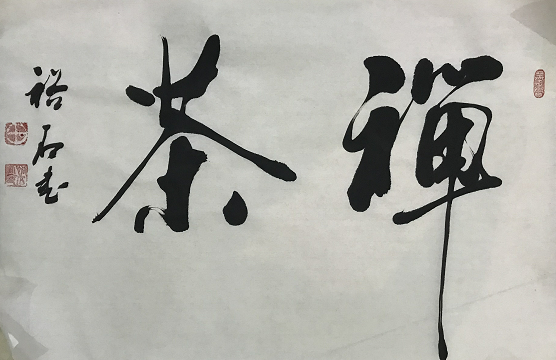 禪茶
裕石书